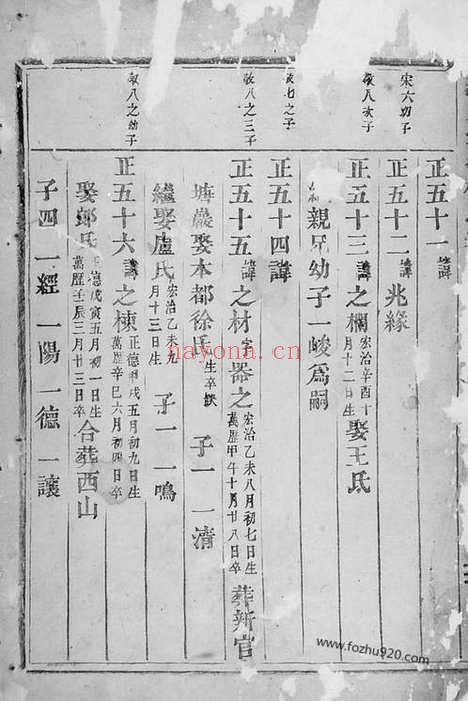 宋六幼子
正五十一諱
正五十二諱 兆緣
敬八次子
正五十三諱之欄 宏治辛酉十月十二日生 娶王氏
親兄幼子一峻為嗣
敬七之子
正五十四諱
敬八之三子
正五十五諱之材字器之 宏治乙未八月初七日生 萬曆甲午十月廿八日卒 葬新官
塘巖娶本都徐氏 生卒缺 子一 一清
繼娶盧氏 宏治乙未九月十三日生 子一 一鳴
敬八之幼子
正五十六諱之棟 正德丙戌五月初九日生 萬曆辛巳六月初四日卒
娶郎氏 正德戊寅五月初一日生 萬曆壬辰三月廿三日卒 合葬西山
子四 一經 一陽 一德 一讓
nayona.cn
www.fozhu920.com